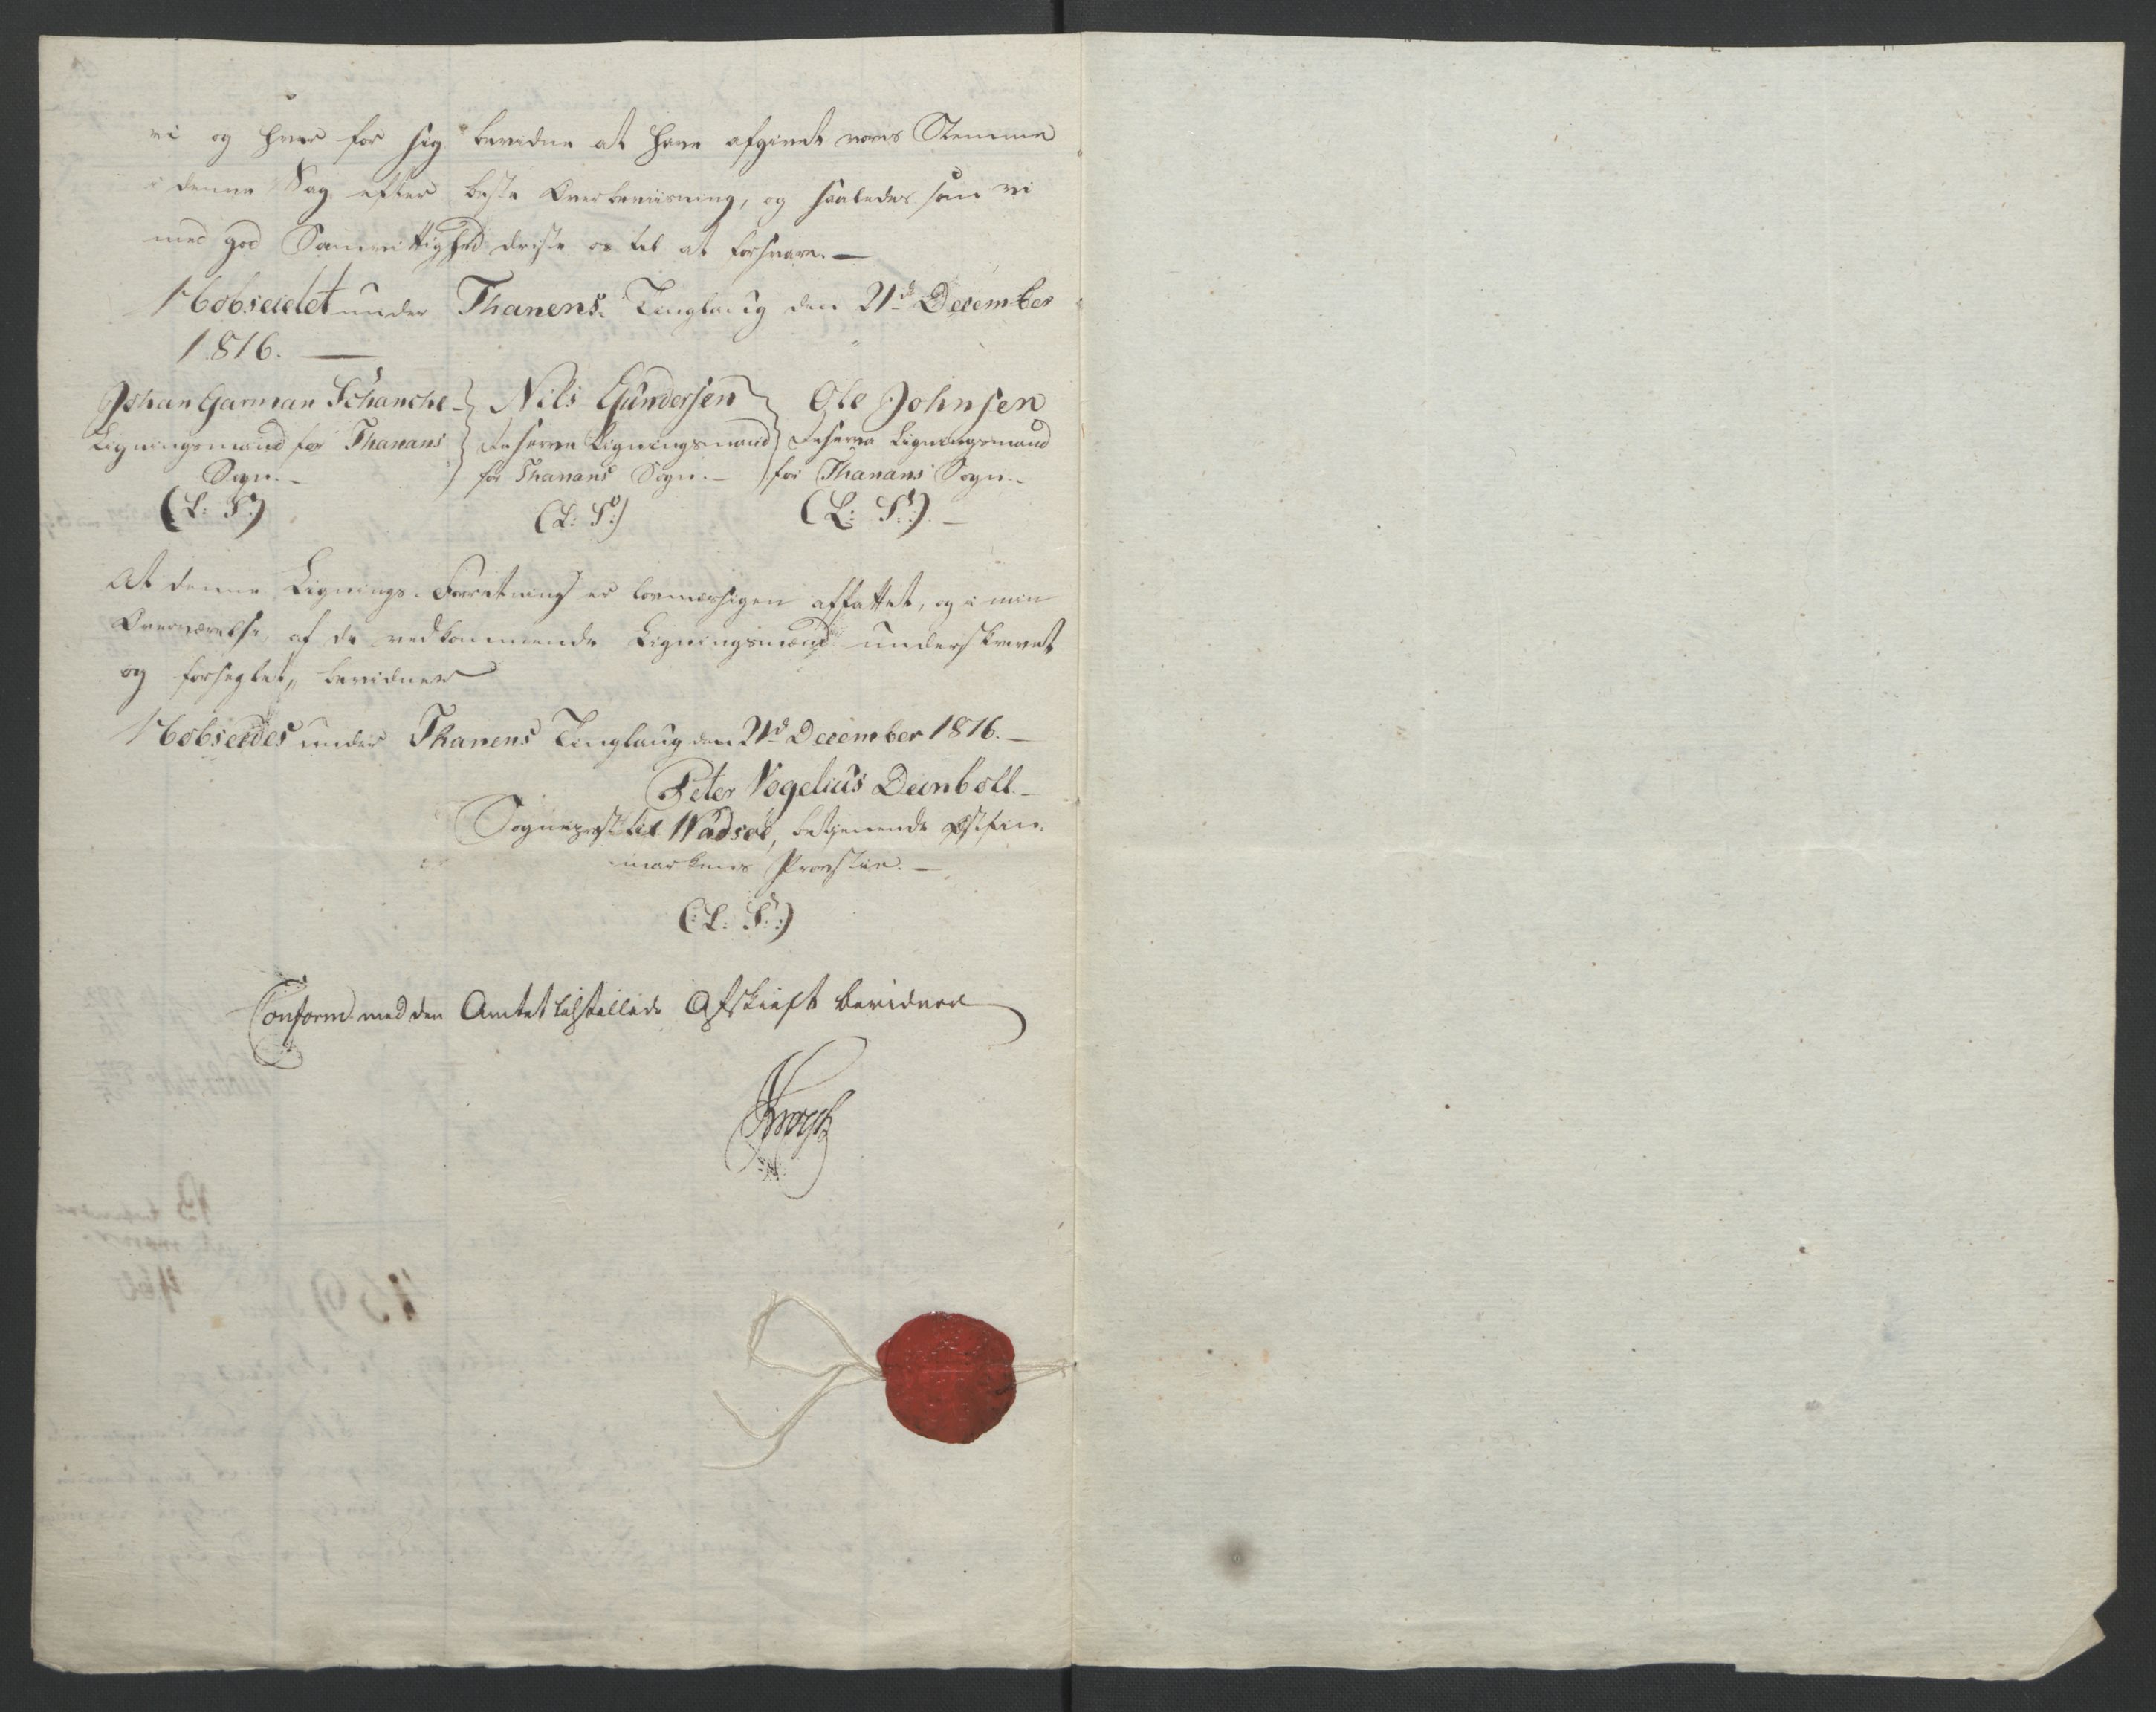 vi og hver for sig bevidne at have afgivet vores Stemme
i denne Sag efter beste Overbeviisning, og saaledes som vi
med god Samvittighed driste os til at forsvare. —
Hobseidet under Thanens Tinglaug den 21de December
1816. —
Johan Garman Schanche
Ligningsmand for Thanans
Sogn. -
(L: S:)
Nils Gundersen
Ligningsmand
for Thanans Sogn. -
(L: S:)
Ole Johnsen
Ligningsmand
for Thanans Sogn. -
(L: S:) -
At denne Lignings-Forretning er lovmæssigen affattet, og i min
Overværelse af de vedkommende Ligningsmænd underskrevet
og forseglet, bevidner
Hobseides under Thanens Tinglaug den 21de December 1816. —
Peter Vogelius Deinboll -
Sognepræst til Wadsøe, betjenende Østfin-
markens Provstie. —
(: L: S:)
Conform med den Amtet tilstillede Afskrift bevidner
Krogh